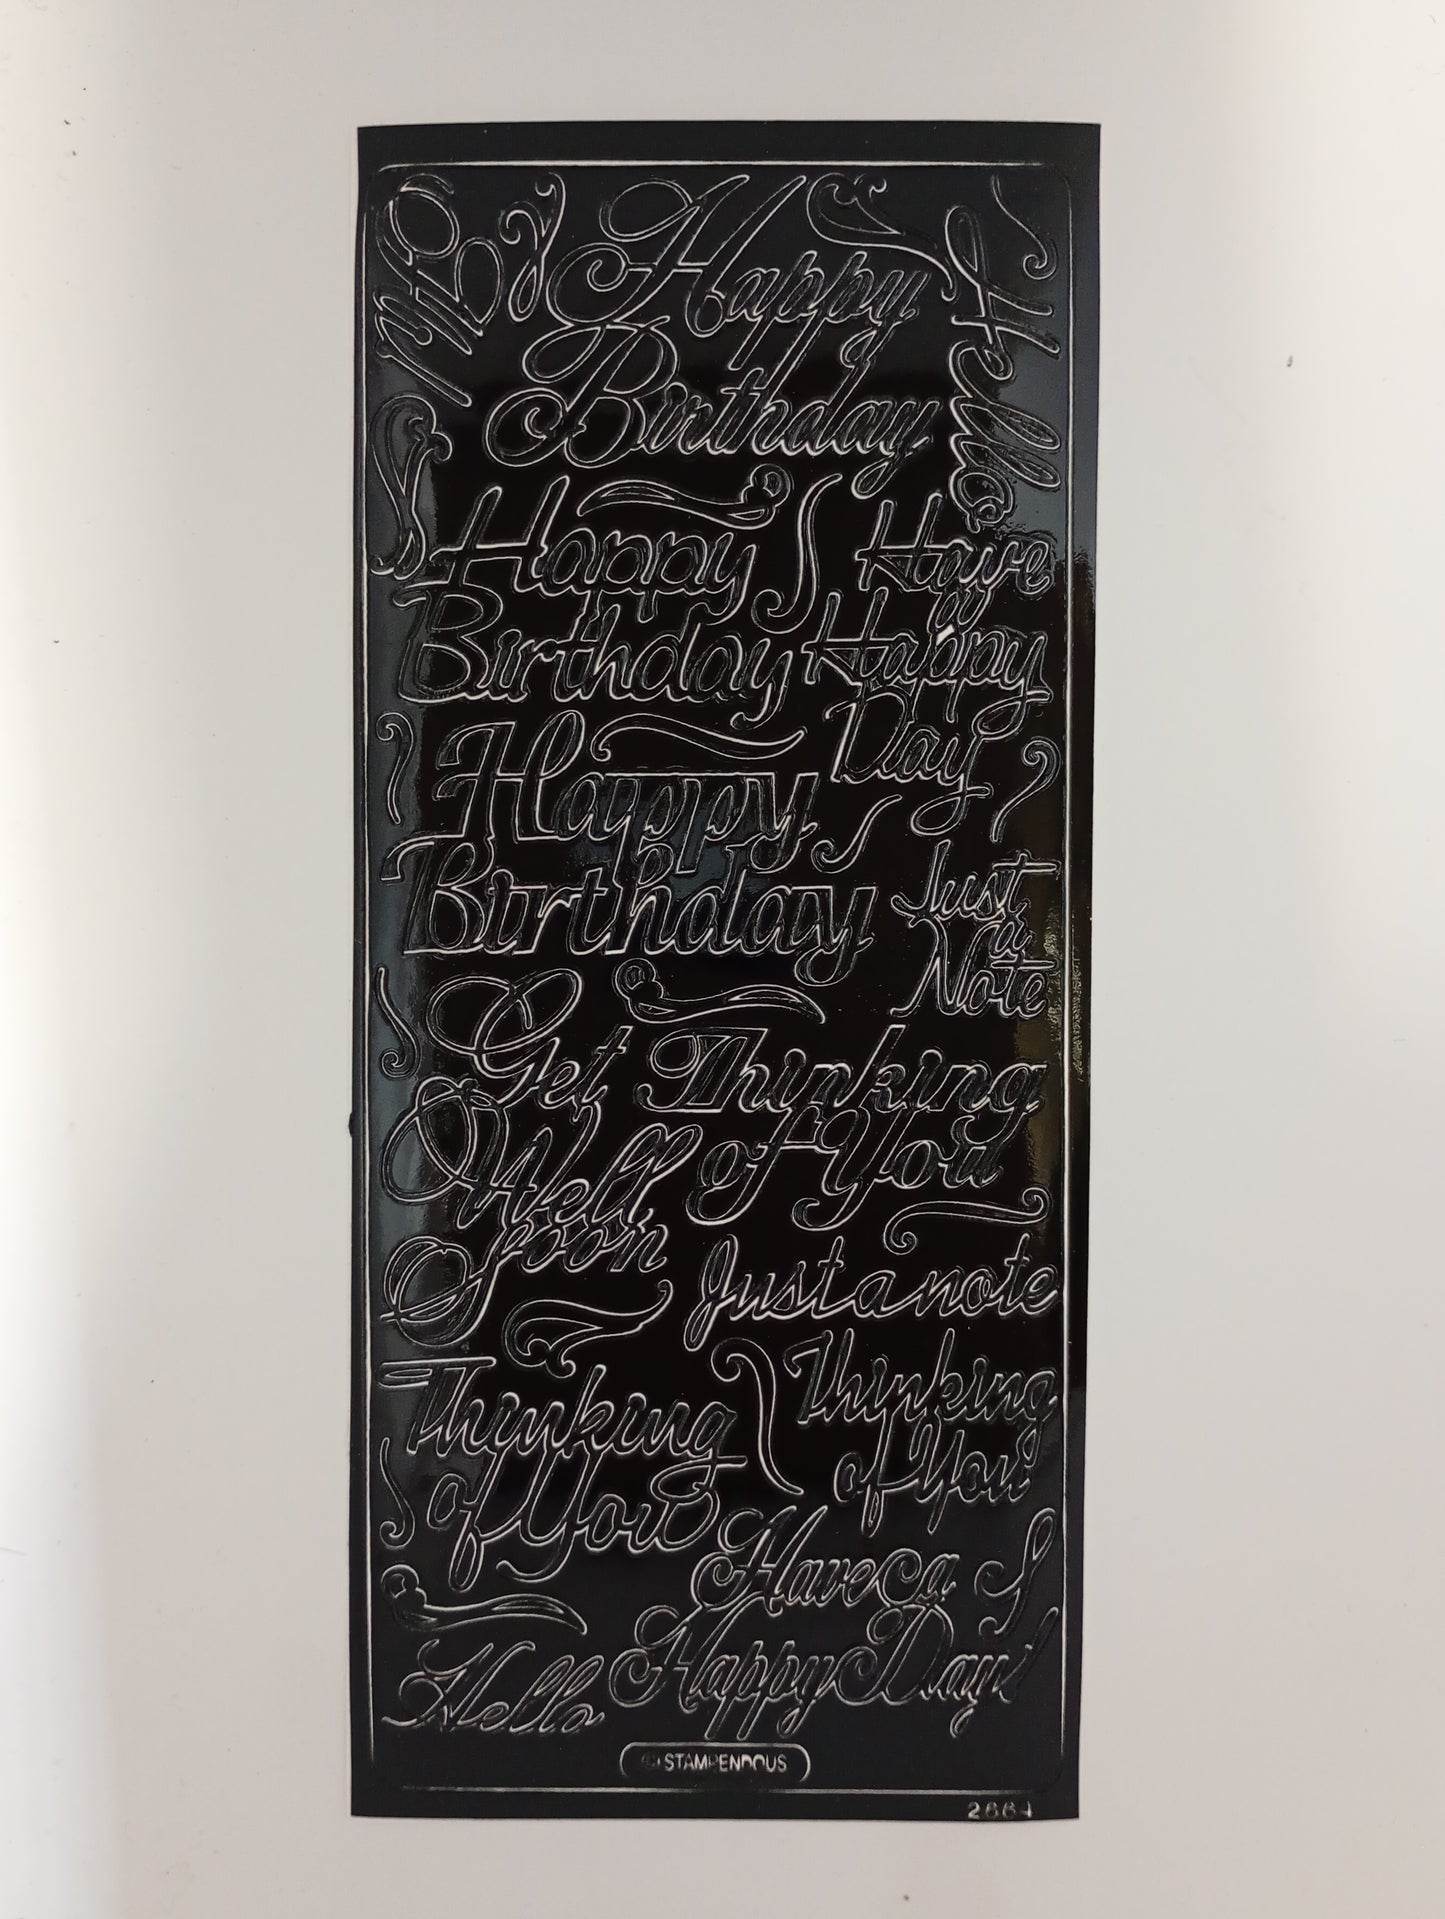 Hello
Happy
Birthday
Hello
Happy
Birthday
Have
a
Happy
Day
Happy
Birthday
Just
a
Note
Get
Well
Soon
Thinking
of You
Just a note
Thinking
of You
Thinking
of You
Have a
Happy Day!
Hello
© STAMPENDOUS
2664